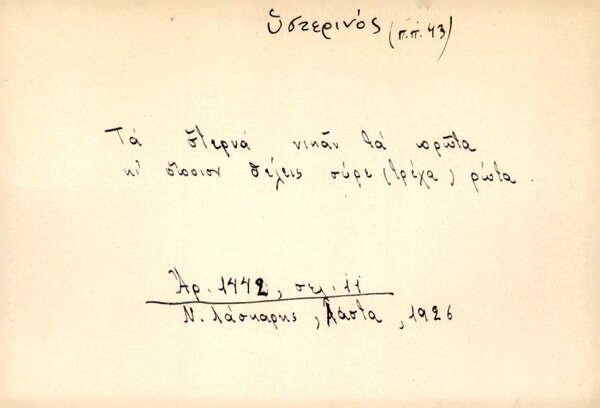 ὑστερινός (π.π. 43)
Τά στερνά νικᾶν τά πρῶτα
κι' ὅποιον θέλεις σύρε (τρέχα) ρώτα.
Ἀρ. 1442, σελ. 11
Ν. Λάσκαρης, Λάστα, 1926